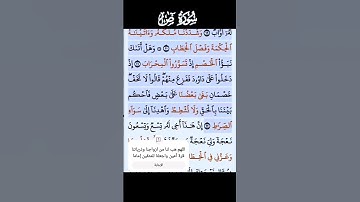 سورة ص
لَّهُۥٓ أَوَّابٌ ۝ وَشَدَدْنَا مُلْكَهُۥ وَءَاتَيْنَٰهُ
ٱلْحِكْمَةَ وَفَصْلَ ٱلْخِطَابِ ۝ وَهَلْ أَتَىٰكَ
نَبَؤُا۟ ٱلْخَصْمِ إِذْ تَسَوَّرُوا۟ ٱلْمِحْرَابَ ۝ إِذْ
دَخَلُوا۟ عَلَىٰ دَاوُۥدَ فَفَزِعَ مِنْهُمْ قَالُوا۟ لَا تَخَفْ
خَصْمَانِ بَغَىٰ بَعْضُنَا عَلَىٰ بَعْضٍ فَٱحْكُم
بَيْنَنَا بِٱلْحَقِّ وَلَا تُشْطِطْ وَٱهْدِنَآ إِلَىٰ سَوَآءِ
ٱلصِّرَٰطِ ۝ إِنَّ هَٰذَآ أَخِى لَهُۥ تِسْعٌ وَتِسْعُونَ
نَعْجَةً وَلِىَ نَعْجَةٌ
وَعَزَّنِى فِى ٱلْخِطَابِ
اللهم هب لنا من أزواجنا وذرياتنا
قرة أعين واجعلنا للمتقين إماما